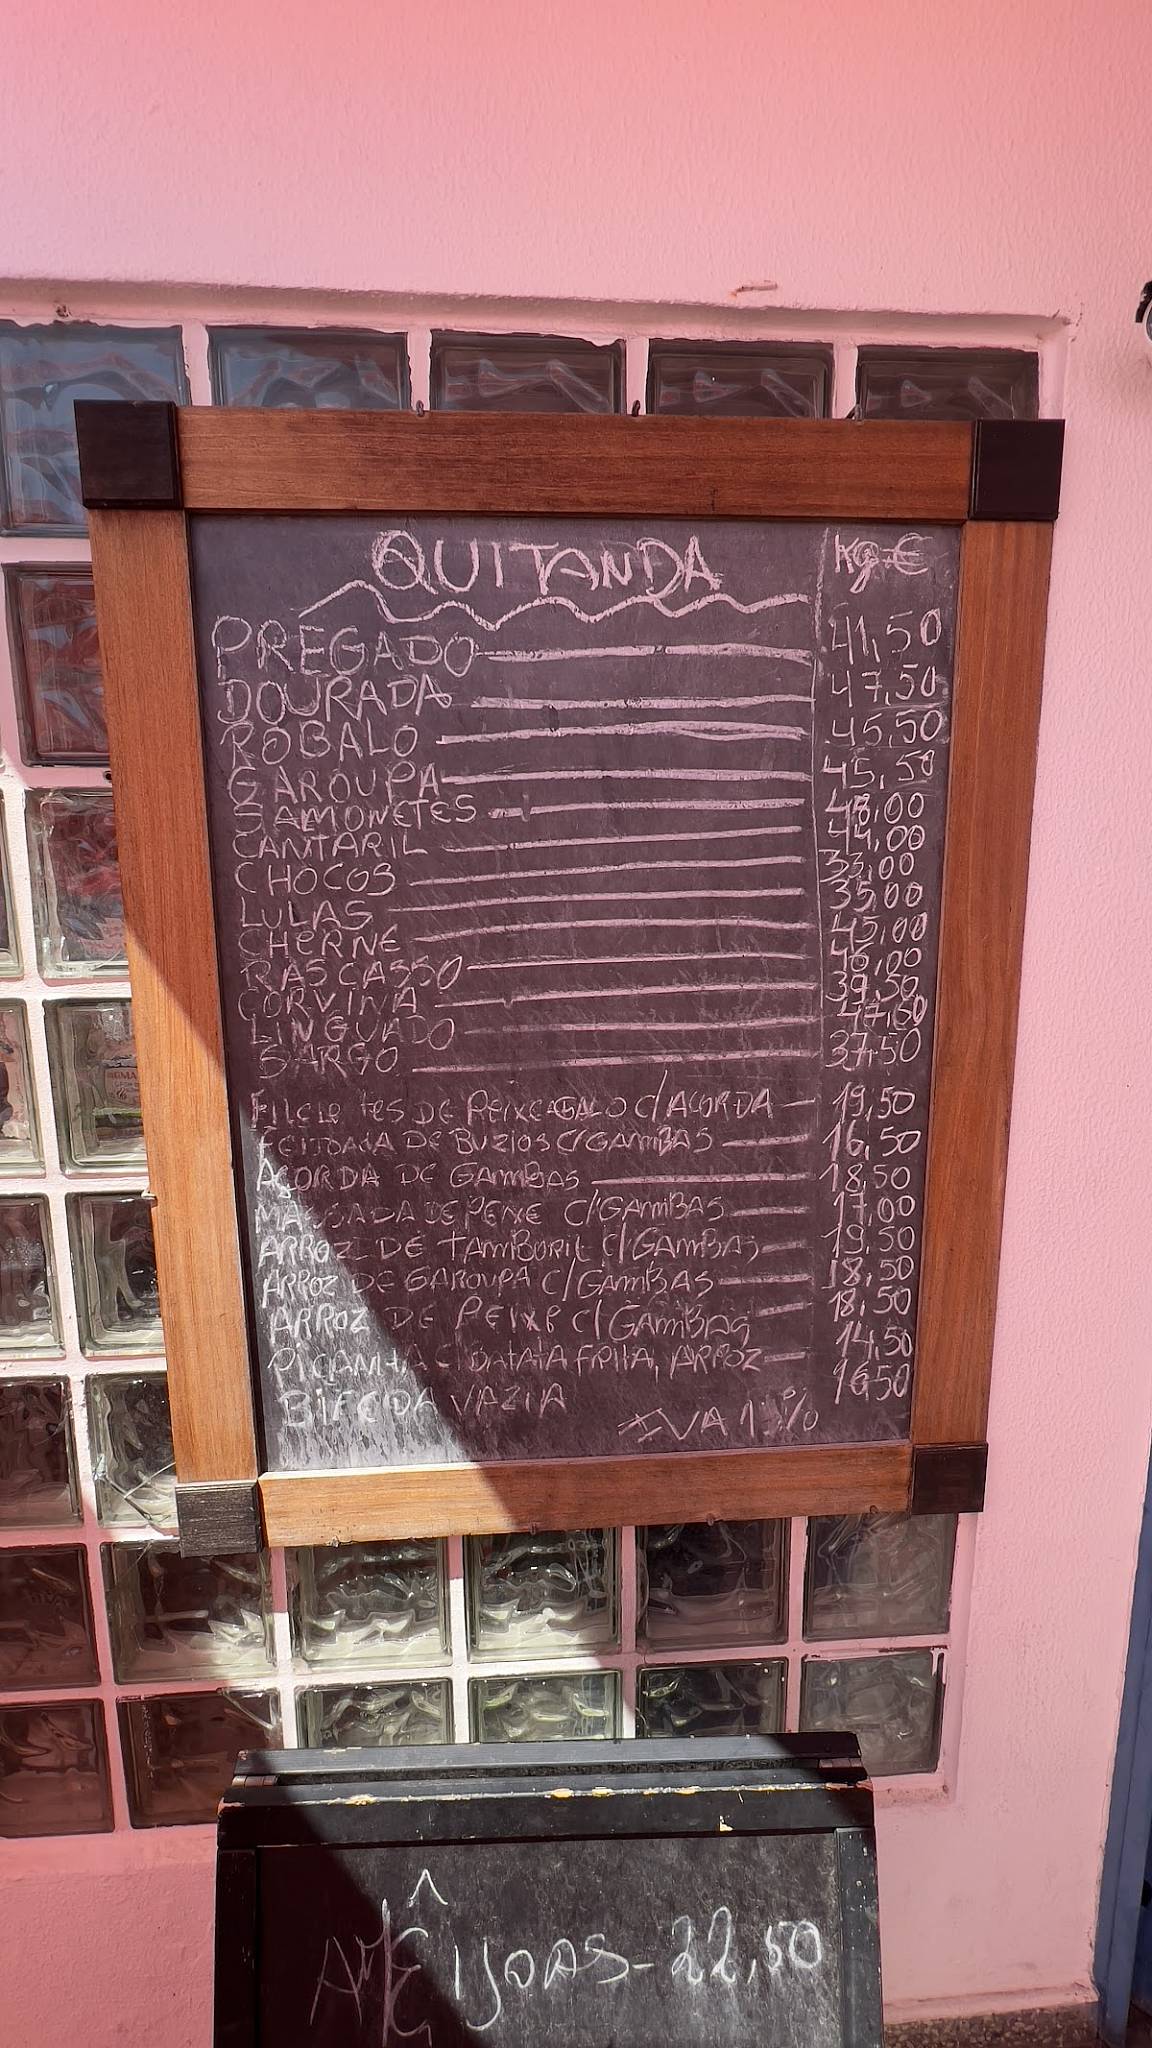 QUITANDA Kg-€
PREGADO 41,50
DOURADA 47,50
ROBALO 45,50
GAROUPA 45,50
SAMONETES 48,00
CANTARIL 44,00
CHOCOS 33,00
LULAS 35,00
CHERNE 45,00
RASCASSO 46,00
CORVINA 39,50
LINGUADO 47,50
SARGO 37,50
DE PEIXE GALO C/ACORDA - 19,50
FEIJOADA DE BUZIOS C/GAMBAS - 16,50
AÇORDA DE GAMBAS - 18,50
MASSADA DE PEIXE C/GAMBAS - 17,00
ARROZ DE TAMBORIL C/GAMBAS - 19,50
ARROZ DE GAROUPA C/GAMBAS - 18,50
ARROZ DE PEIXE C/GAMBAS - 18,50
PICANHA C/BATATA FRITA, ARROZ - 14,50
BIFE DA VAZIA 16,50
IVA %
AMÊIJOAS - 22,50